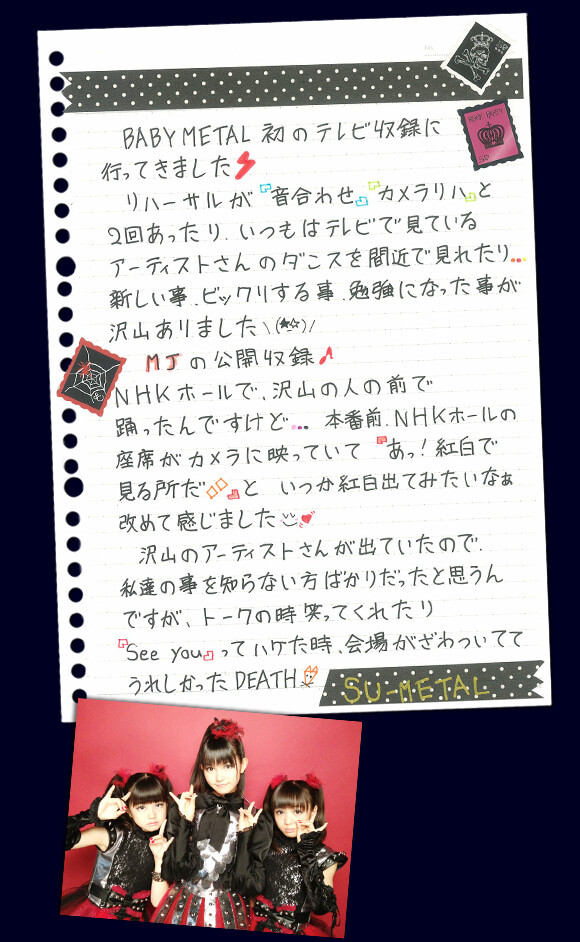 BABYMETAL 初のテレビ収録に
行ってきました
リハーサルが『音合わせ』『カメラリハ』と
2回あったり、いつもはテレビで見ている
アーティストさんのダンスを間近で見れたり...
新しい事、ビックリする事、勉強になった事が
沢山ありました\(★☆)/
MJの公開収録♪
NHKホールで、沢山の人の前で
踊ったんですけど... 本番前、NHKホールの
座席がカメラに映っていて『あっ!紅白で
見る所だ◇◇』と いつか紅白出てみたいなぁ
改めて感じました
沢山のアーティストさんが出ていたので、
私達の事を知らない方ばかりだったと思うん
ですが、トークの時笑ってくれたり
『See you』ってハケた時、会場がざわついてて
うれしかったDEATH
SU-METAL